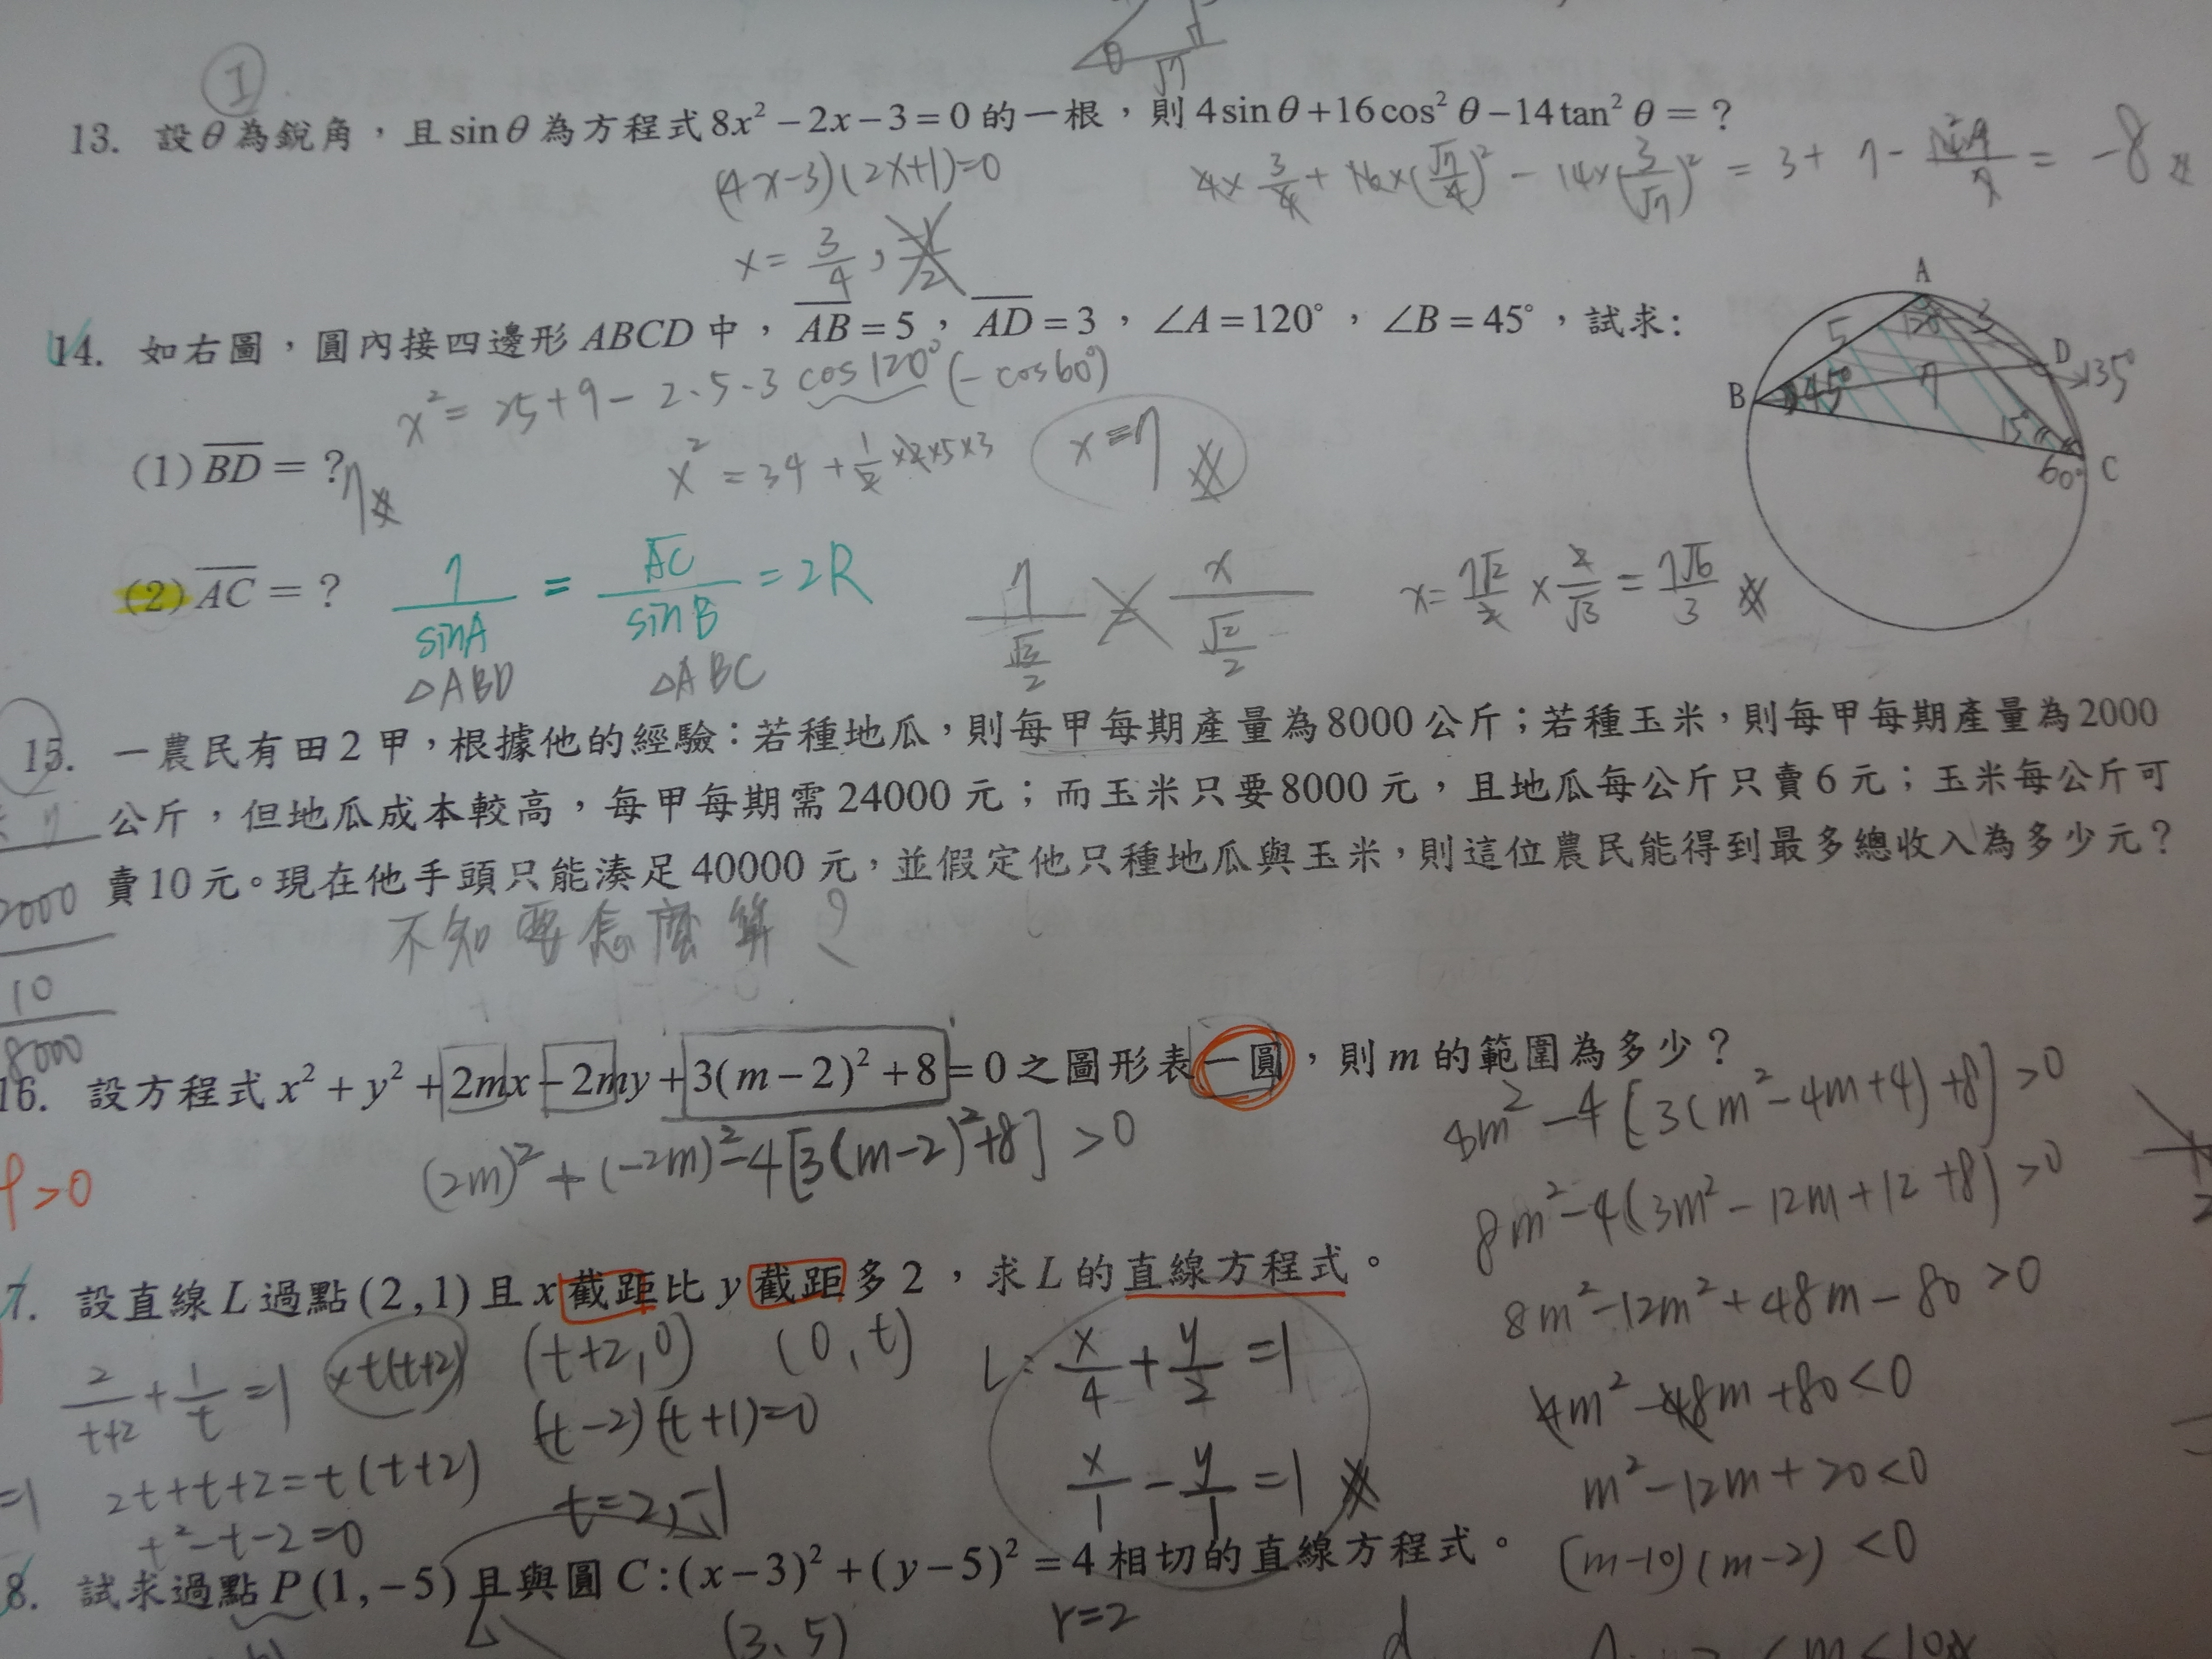 θ √7
①
13. 設θ為銳角，且sinθ為方程式8x²－2x－3＝0的一根，則4sinθ＋16cos²θ－14tan²θ＝？
(4x-3)(2x+1)=0
4×3/4+16×(√7/4)²－14×(3/√7)²=3+7－ =-8
x=3/4,
14. 如右圖，圓內接四邊形ABCD中，AB＝5，AD＝3，∠A＝120°，∠B＝45°，試求：
x²=25+9－2·5·3 cos120°(－cos60°)
(1) BD＝？7
x²=34+1/2×2×5×3
x=7
(2) AC＝？
7/sinA = AC/sinB =2R
△ABD △ABC
7/(√3/2) x/(√2/2)
x=7√2/2×2/√3=7√6/3
A
5 120° 3
D
135°
B 45° 7
15°
60° C
15. 一農民有田2甲，根據他的經驗：若種地瓜，則每甲每期產量為8000公斤；若種玉米，則每甲每期產量為2000
公斤，但地瓜成本較高，每甲每期需24000元；而玉米只要8000元，且地瓜每公斤只賣6元；玉米每公斤可
賣10元。現在他手頭只能湊足40000元，並假定他只種地瓜與玉米，則這位農民能得到最多總收入為多少元？
不知要怎麼算？
2000
10
8000
16. 設方程式x²＋y²＋2mx－2my＋3(m－2)²＋8＝0之圖形表一圓，則m的範圍為多少？
(2m)²+(-2m)²-4[3(m-2)²+8]>0
8m²-4[3(m²-4m+4)+8]>0
8m²-4(3m²-12m+12+8)>0
8m²-12m²+48m-80>0
4m²-48m+80<0
m²-12m+20<0
(m-10)(m-2)<0
>0
7. 設直線L過點(2,1)且x截距比y截距多2，求L的直線方程式。
2/(t+2)+1/t=1 ×t(t+2) (t+2,0) (0,t)
L: x/4+y/2=1
(t-2)(t+1)=0
=1 2t+t+2=t(t+2)
t=2,-1
x/1-y/1=1
t²-t-2=0
8. 試求過點P(1,－5)且與圓C:(x－3)²＋(y－5)²＝4相切的直線方程式。
(3、5) r=2 d
<m<10